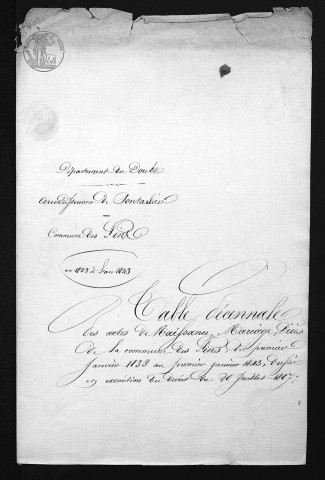 Département du Doubs
arrondissement de Pontarlier
Commune des Fins
an 1833 à l'an 1843
Table décennale
des actes de Naissance, Mariage, Décès
de la commune des Fins, du premier
Janvier 1833 au premier janvier 1843, dressée
en exécution du décret du 20 Juillet 1807.